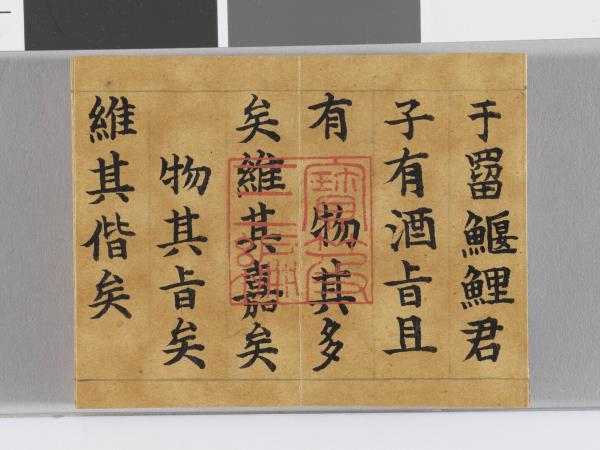 于罶鰋鯉君
子有酒旨且
有 物其多
矣維其嘉矣
物其旨矣
維其偕矣